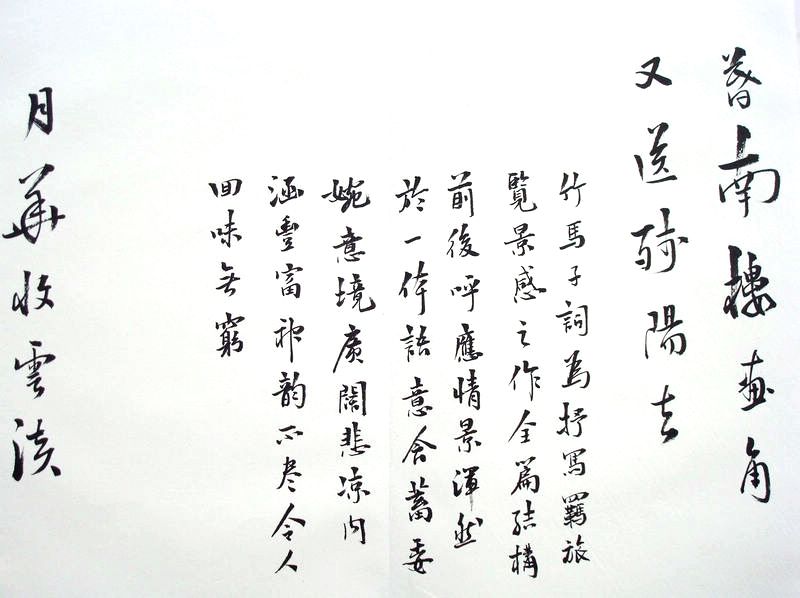 暮南樓画角
又送残陽去
竹馬子詞為抒寫羈旅
覽景感之作全篇結構
前後呼應情景渾然
於一体語意含蓄委
婉意境廣闊悲凉内
涵豐富神韵不尽令人
回味无窮
月華收雲淡